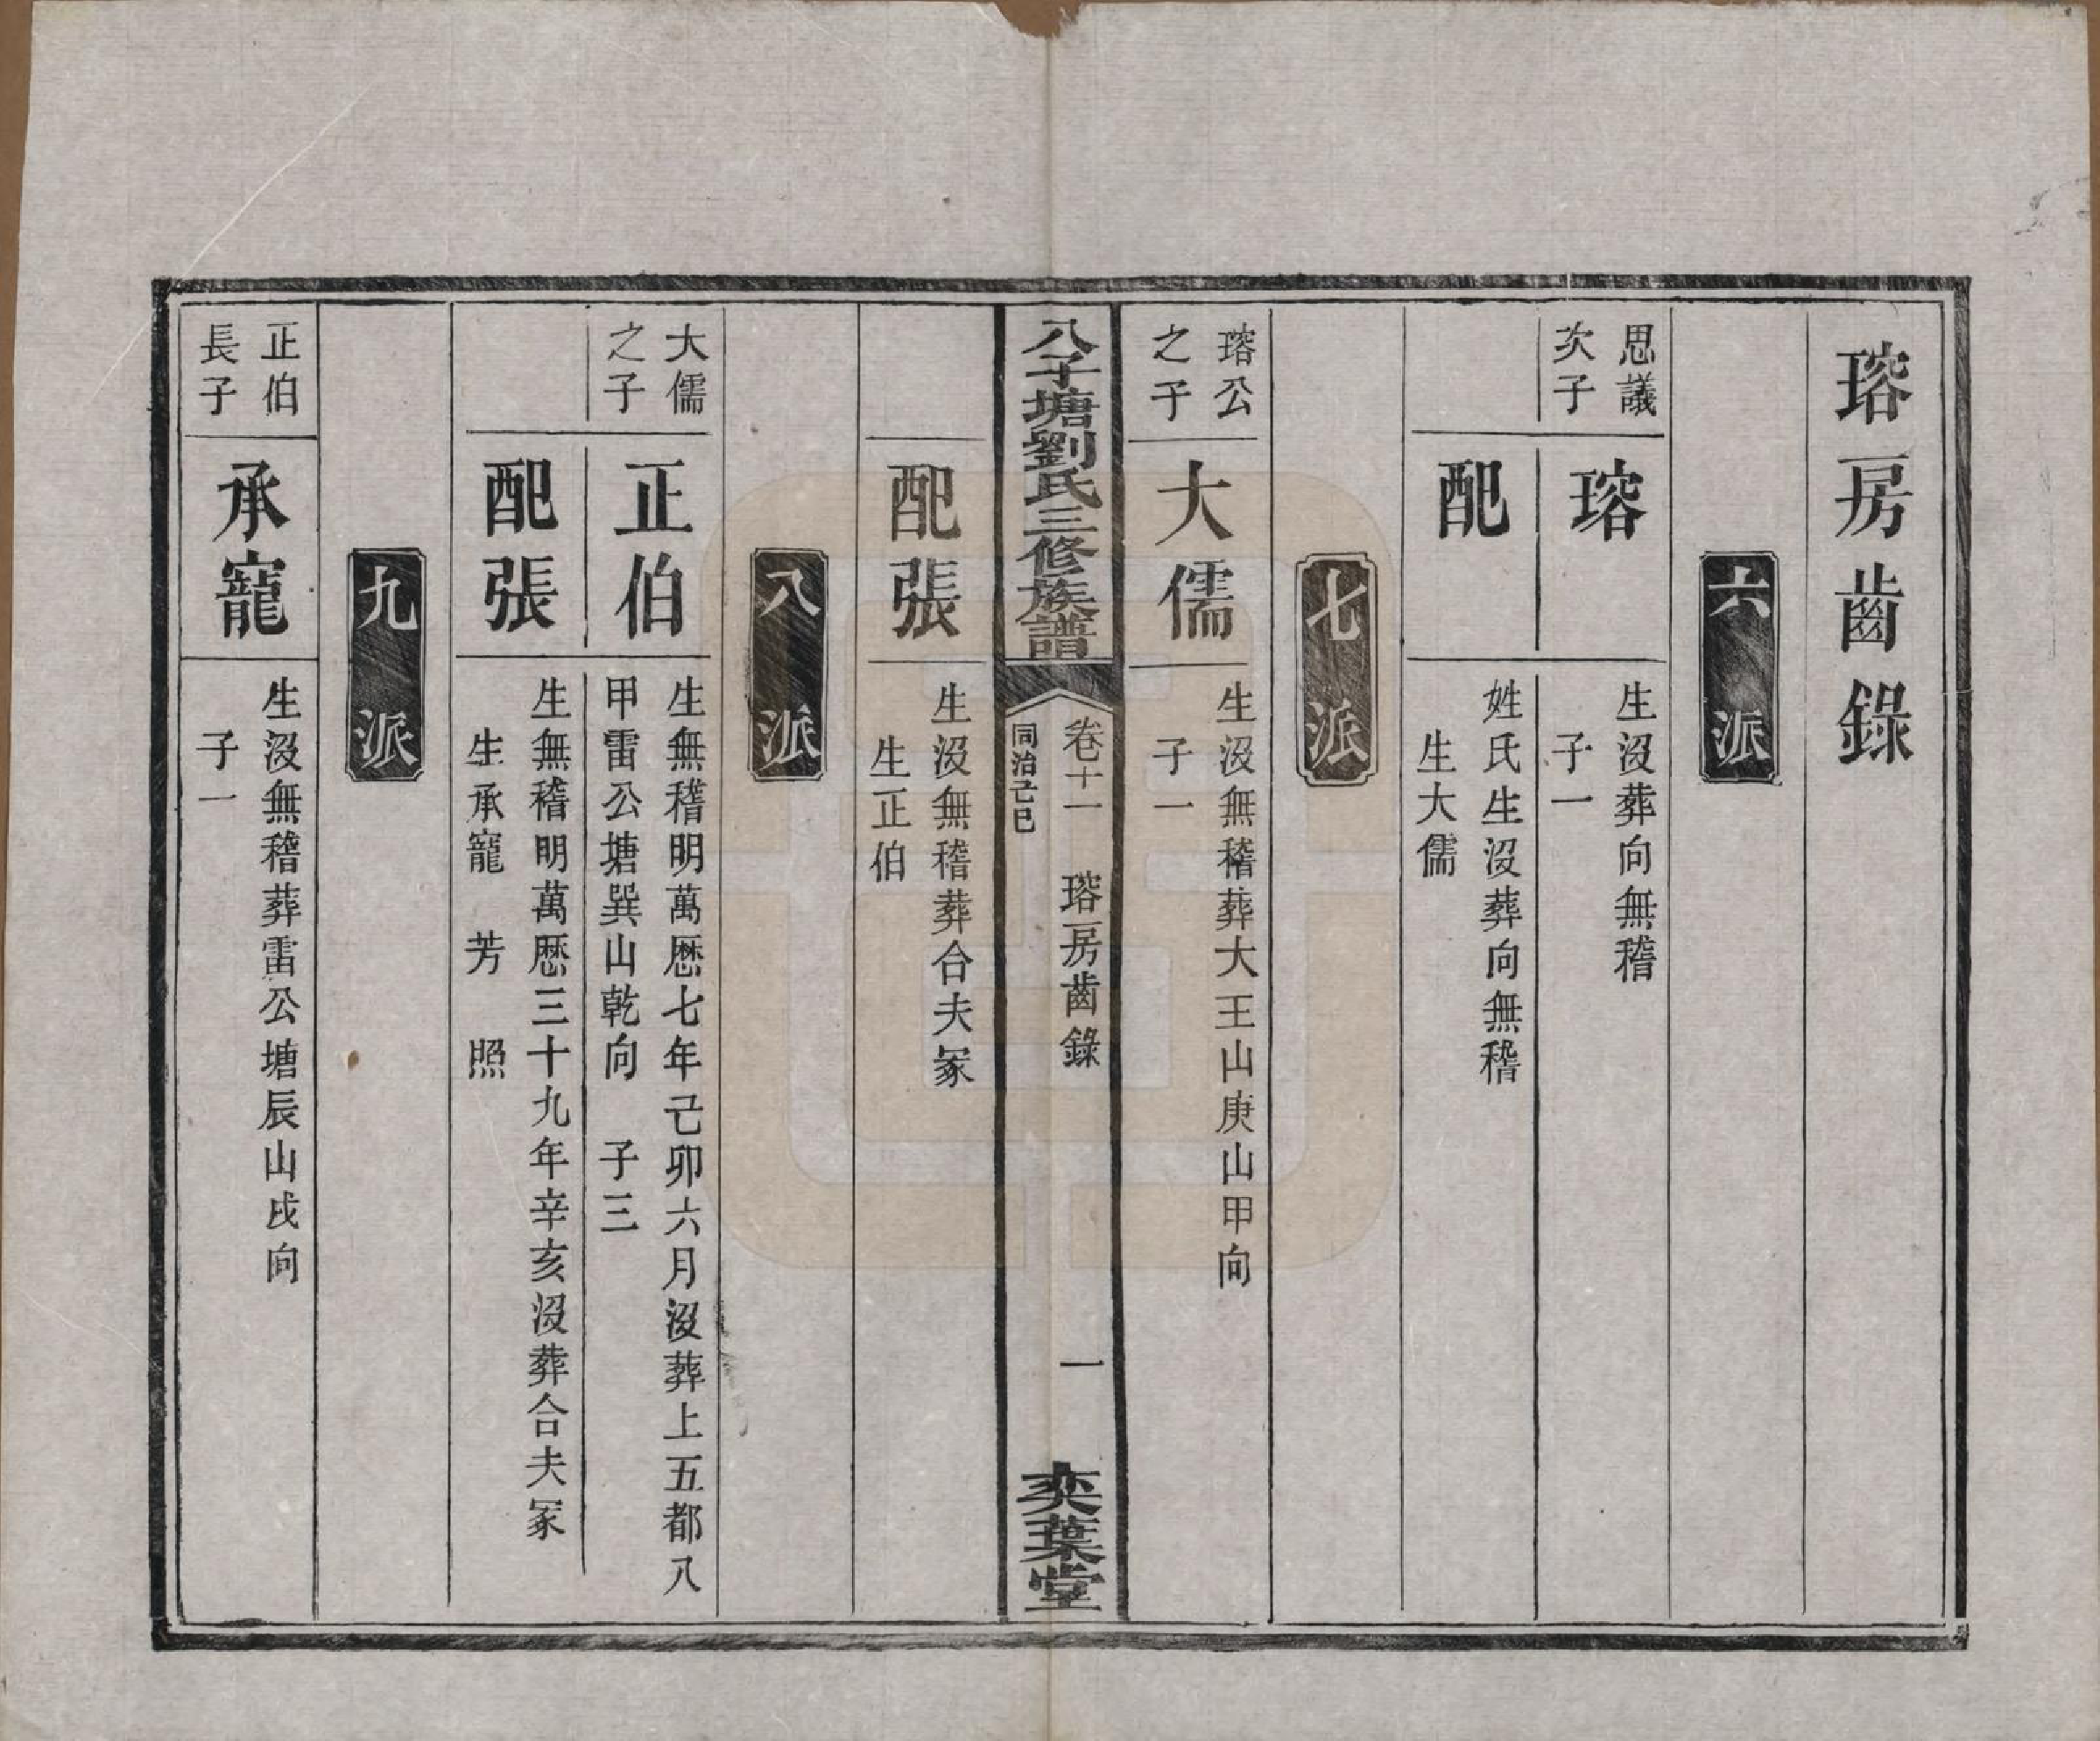 瑢房齒錄
六派
思議
次子
瑢
生沒葬向無稽
子一
配
姓氏生沒葬向無稽
生大儒
七派
瑢公
之子
大儒
生沒無稽葬大王山庚山甲向
子一
八子塘劉氏三修族譜
卷十一 瑢房齒錄 一
同治己巳
奕葉堂
配張
生沒無稽葬合夫冢
生正伯
八派
大儒
之子
正伯
生無稽明萬厯七年己卯六月沒葬上五都八
甲雷公塘巽山乾向 子三
配張
生無稽明萬厯三十九年辛亥沒葬合夫冢
生承寵 芳 照
九派
正伯
長子
承寵
生沒無稽葬雷公塘辰山戌向
子一